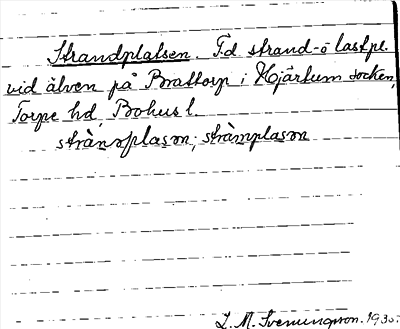 Strandplatsen. F.d. strand- o lastpl.
vid älven på Brattorp i Hjärtum socken,
Torpe hd, Bohus l.
strànsplason; stràmplason
L. M. Svenungsson. 1930.